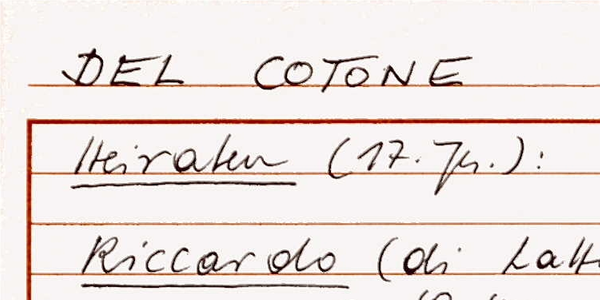 DEL COTONE
Heiraten (17. Jh.):
Riccardo (di